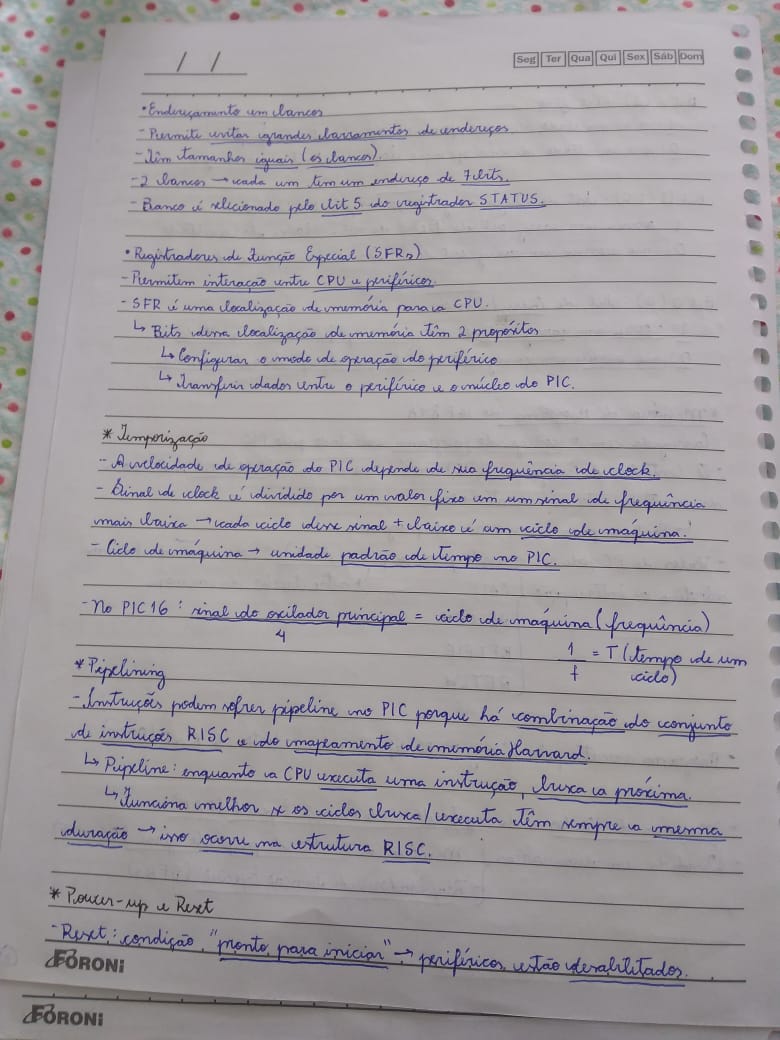 / /
Seg Ter Qua Qui Sex Sáb Dom
• Endereçamento em bancos
- Permite evitar grandes barramentos de endereços
- Têm tamanhos iguais (os bancos).
- 2 bancos → cada um tem um endereço de 7 bits.
- Banco é selecionado pelo bit 5 do registrador STATUS.
• Registradores de Função Especial (SFRs)
- Permitem interação entre CPU e periféricos.
- SFR é uma localização de memória para a CPU.
↳ Bits dessa localização de memória têm 2 propósitos
↳ Configurar o modo de operação do periférico
↳ Transferir dados entre o periférico e o núcleo do PIC.
* Temporização
- A velocidade de operação do PIC depende de sua frequência de clock.
- Sinal de clock é dividido por um valor fixo em um sinal de frequência
mais baixa → cada ciclo desse sinal + baixo é um ciclo de máquina.
- Ciclo de máquina → unidade padrão de tempo no PIC.
- No PIC16 : sinal do oscilador principal = ciclo de máquina (frequência)
4
1 = T (tempo de um
f ciclo)
* Pipelining
- Instruções podem sofrer pipeline no PIC porque há combinação do conjunto
de instruções RISC e do mapeamento de memória Harvard.
↳ Pipeline: enquanto a CPU executa uma instrução, busca a próxima.
↳ Funciona melhor se os ciclos busca/executa têm sempre a mesma
duração → isso ocorre na estrutura RISC.
* Power-up e Reset
- Reset: condição "pronto para iniciar" → periféricos estão desabilitados.
FORONI
FORONI